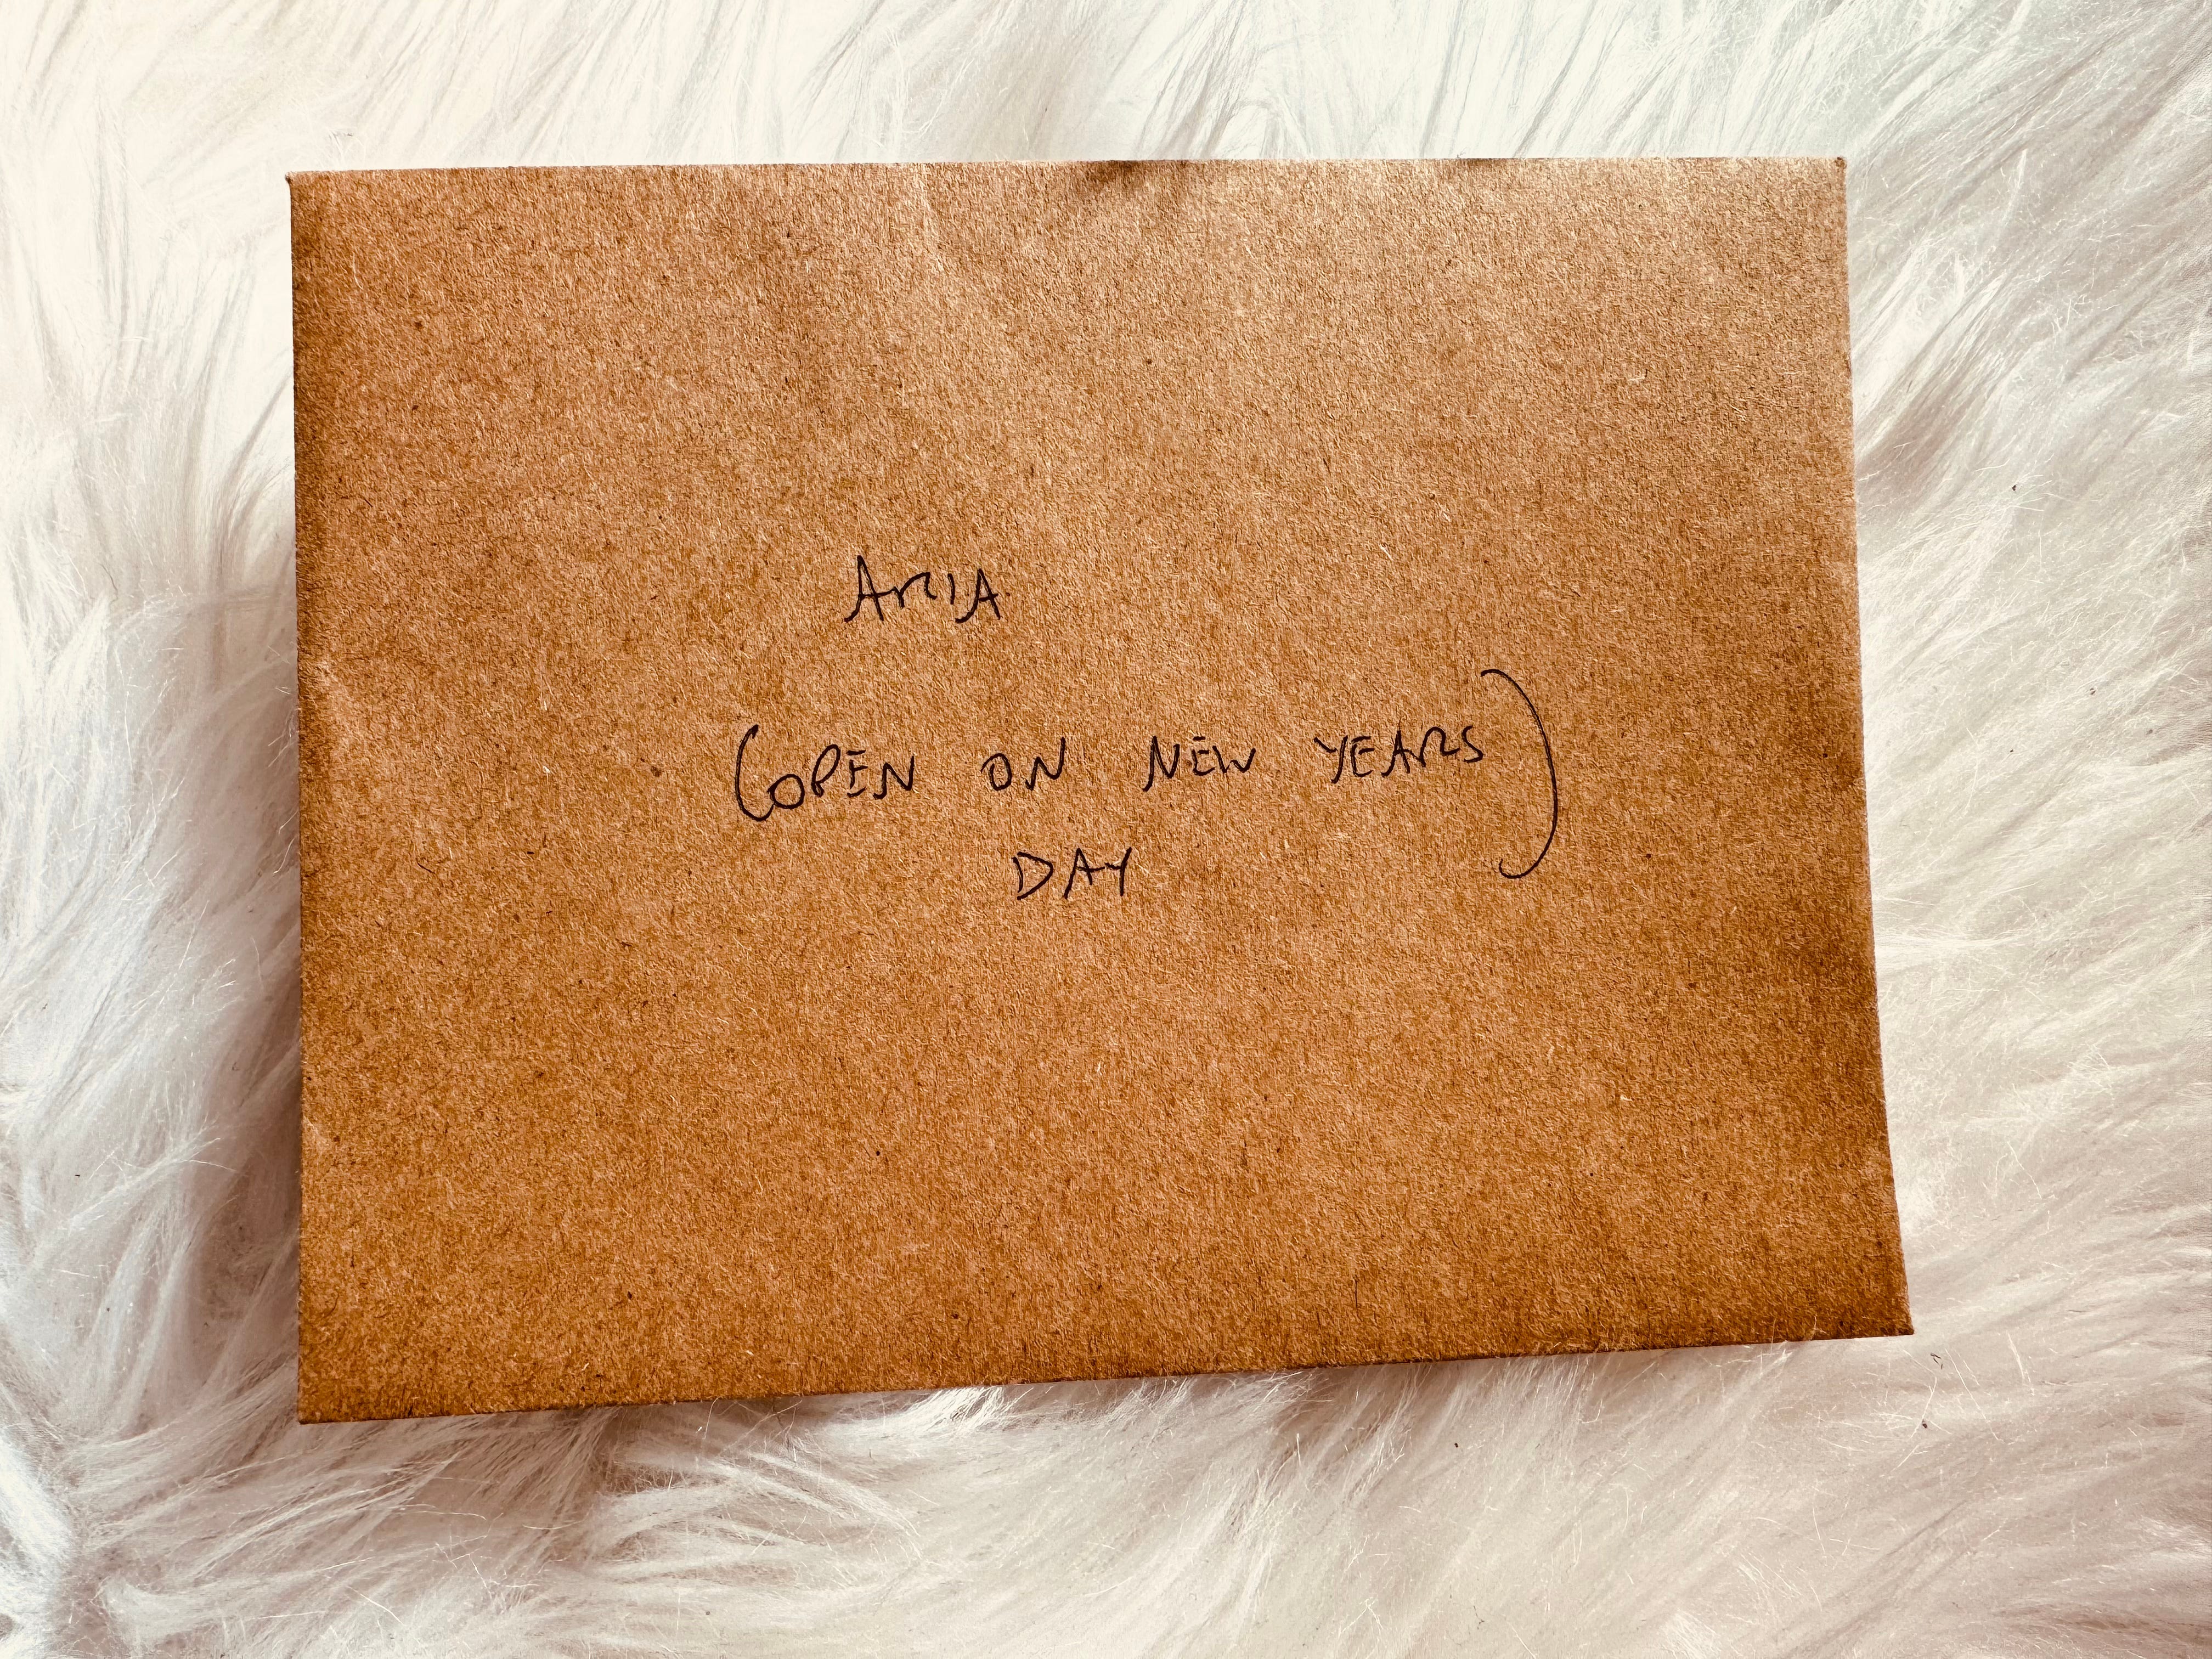 ARIA
(OPEN ON NEW YEARS)
DAY